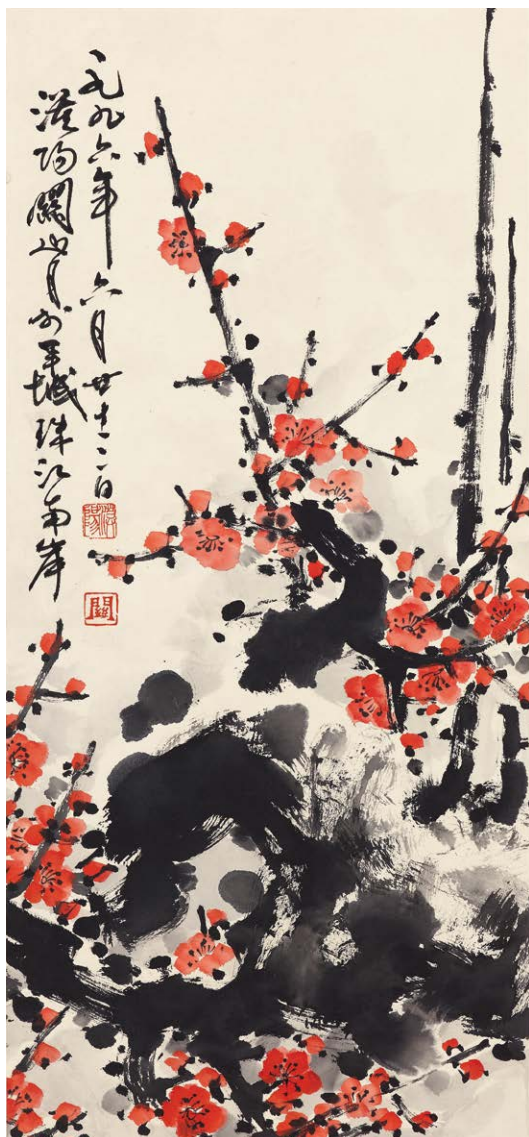 一九九六年六月廿十二日
漠陽關山月於羊城珠江南岸
漠陽
關